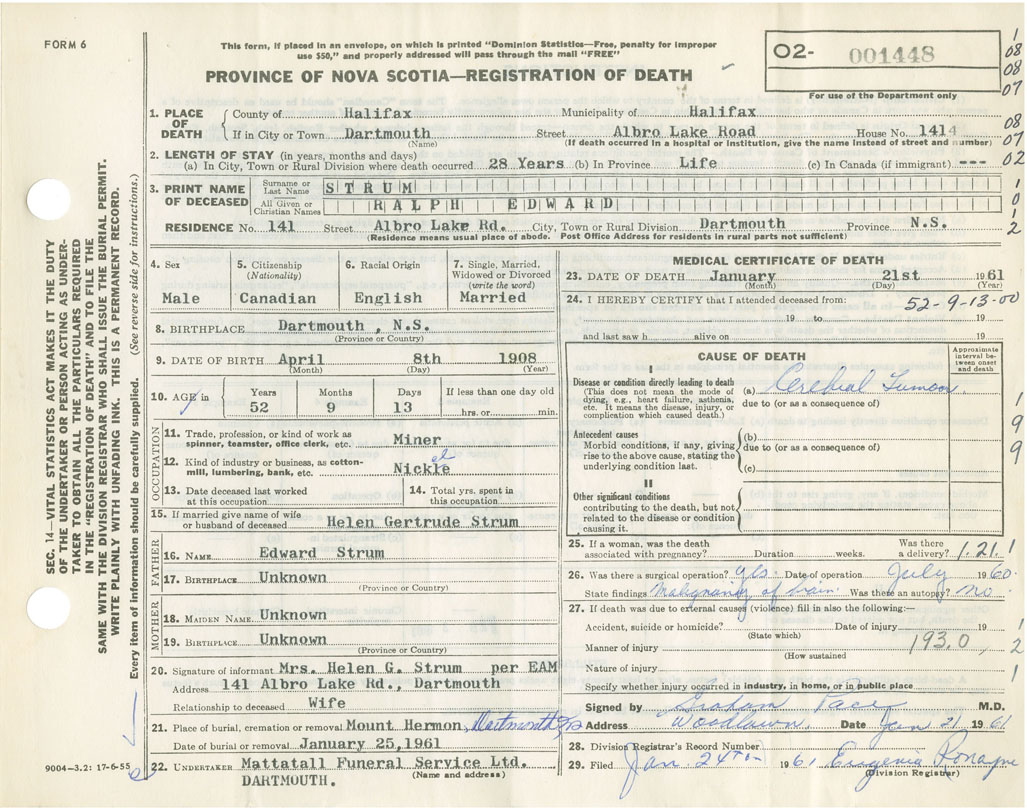 FORM 6
This form, if placed in an envelope, on which is printed "Dominion Statistics—Free, penalty for improper
use $50," and properly addressed will pass through the mail "FREE"
PROVINCE OF NOVA SCOTIA—REGISTRATION OF DEATH
02- 001448
For use of the Department only
1
08
08
07
08
07
02
1
0
1
2
SEC. 14—VITAL STATISTICS ACT MAKES IT THE DUTY
OF THE UNDERTAKER OR PERSON ACTING AS UNDER-
TAKER TO OBTAIN ALL THE PARTICULARS REQUIRED
IN THE "REGISTRATION OF DEATH" AND TO FILE THE
SAME WITH THE DIVISION REGISTRAR WHO SHALL ISSUE THE BURIAL PERMIT.
WRITE PLAINLY WITH UNFADING INK. THIS IS A PERMANENT RECORD.
Every item of information should be carefully supplied. (See reverse side for instructions.)
1. PLACE OF DEATH
County of Halifax Municipality of Halifax
If in City or Town Dartmouth Street Albro Lake Road House No. 141
(Name) (If death occurred in a hospital or institution, give the name instead of street and number)
2. LENGTH OF STAY (in years, months and days)
(a) In City, Town or Rural Division where death occurred 28 Years (b) In Province Life (c) In Canada (if immigrant) ---
3. PRINT NAME OF DECEASED
Surname or Last Name STRUM
All Given or Christian Names RALPH EDWARD
RESIDENCE No. 141 Street Albro Lake Rd. City, Town or Rural Division Dartmouth Province N.S.
(Residence means usual place of abode. Post Office Address for residents in rural parts not sufficient)
4. Sex
Male
5. Citizenship
(Nationality)
Canadian
6. Racial Origin
English
7. Single, Married,
Widowed or Divorced
(write the word)
Married
8. BIRTHPLACE Dartmouth , N.S.
(Province or Country)
9. DATE OF BIRTH April 8th 1908
(Month) (Day) (Year)
10. AGE in Years Months Days If less than one day old
52 9 13 hrs. or min.
OCCUPATION
11. Trade, profession, or kind of work as
spinner, teamster, office clerk, etc. Miner
12. Kind of industry or business, as cotton-
mill, lumbering, bank, etc. Nickle el
13. Date deceased last worked
at this occupation
14. Total yrs. spent in
this occupation
15. If married give name of wife
or husband of deceased Helen Gertrude Strum
FATHER
16. NAME Edward Strum
17. BIRTHPLACE Unknown
(Province or Country)
MOTHER
18. MAIDEN NAME Unknown
19. BIRTHPLACE Unknown
(Province or Country)
20. Signature of informant Mrs. Helen G. Strum per EAM
Address 141 Albro Lake Rd., Dartmouth
Relationship to deceased Wife
21. Place of burial, cremation or removal Mount Hermon, Dartmouth
Date of burial or removal January 25,1961
22. UNDERTAKER Mattatall Funeral Service Ltd.
(Name and address)
DARTMOUTH.
9004-3.2: 17-6-55
MEDICAL CERTIFICATE OF DEATH
23. DATE OF DEATH January 21st 1961
(Month) (Day) (Year)
24. I HEREBY CERTIFY that I attended deceased from: 52-9-13-00
19 to 19
and last saw h alive on 19
CAUSE OF DEATH
Approximate
interval be-
tween onset
and death
I
Disease or condition directly leading to death
(This does not mean the mode of
dying, e.g., heart failure, asthenia,
etc. It means the disease, injury, or
complication which caused death.)
(a) Cerebral Tumour
due to (or as a consequence of)
Antecedent causes
Morbid conditions, if any, giving
rise to the above cause, stating the
underlying condition last.
(b)
due to (or as a consequence of)
(c)
II
Other significant conditions
contributing to the death, but not
related to the disease or condition
causing it.
1
9
9
25. If a woman, was the death
associated with pregnancy? Duration weeks. Was there
a delivery? 1.21.1
26. Was there a surgical operation? yes. Date of operation July 1960.
State findings Malignancy of brain. Was there an autopsy? no.
27. If death was due to external causes (violence) fill in also the following:—
Accident, suicide or homicide? Date of injury 19
(State which)
Manner of injury 193.0
(How sustained
Nature of injury
Specify whether injury occurred in industry, in home, or in public place
1
2
1
Signed by Graham Pace M.D.
Address Woodlawn. Date Jan 21 1961
28. Division Registrar's Record Number
29. Filed Jan. 24th 1961 Eugenia Ronayne
(Division Registrar)